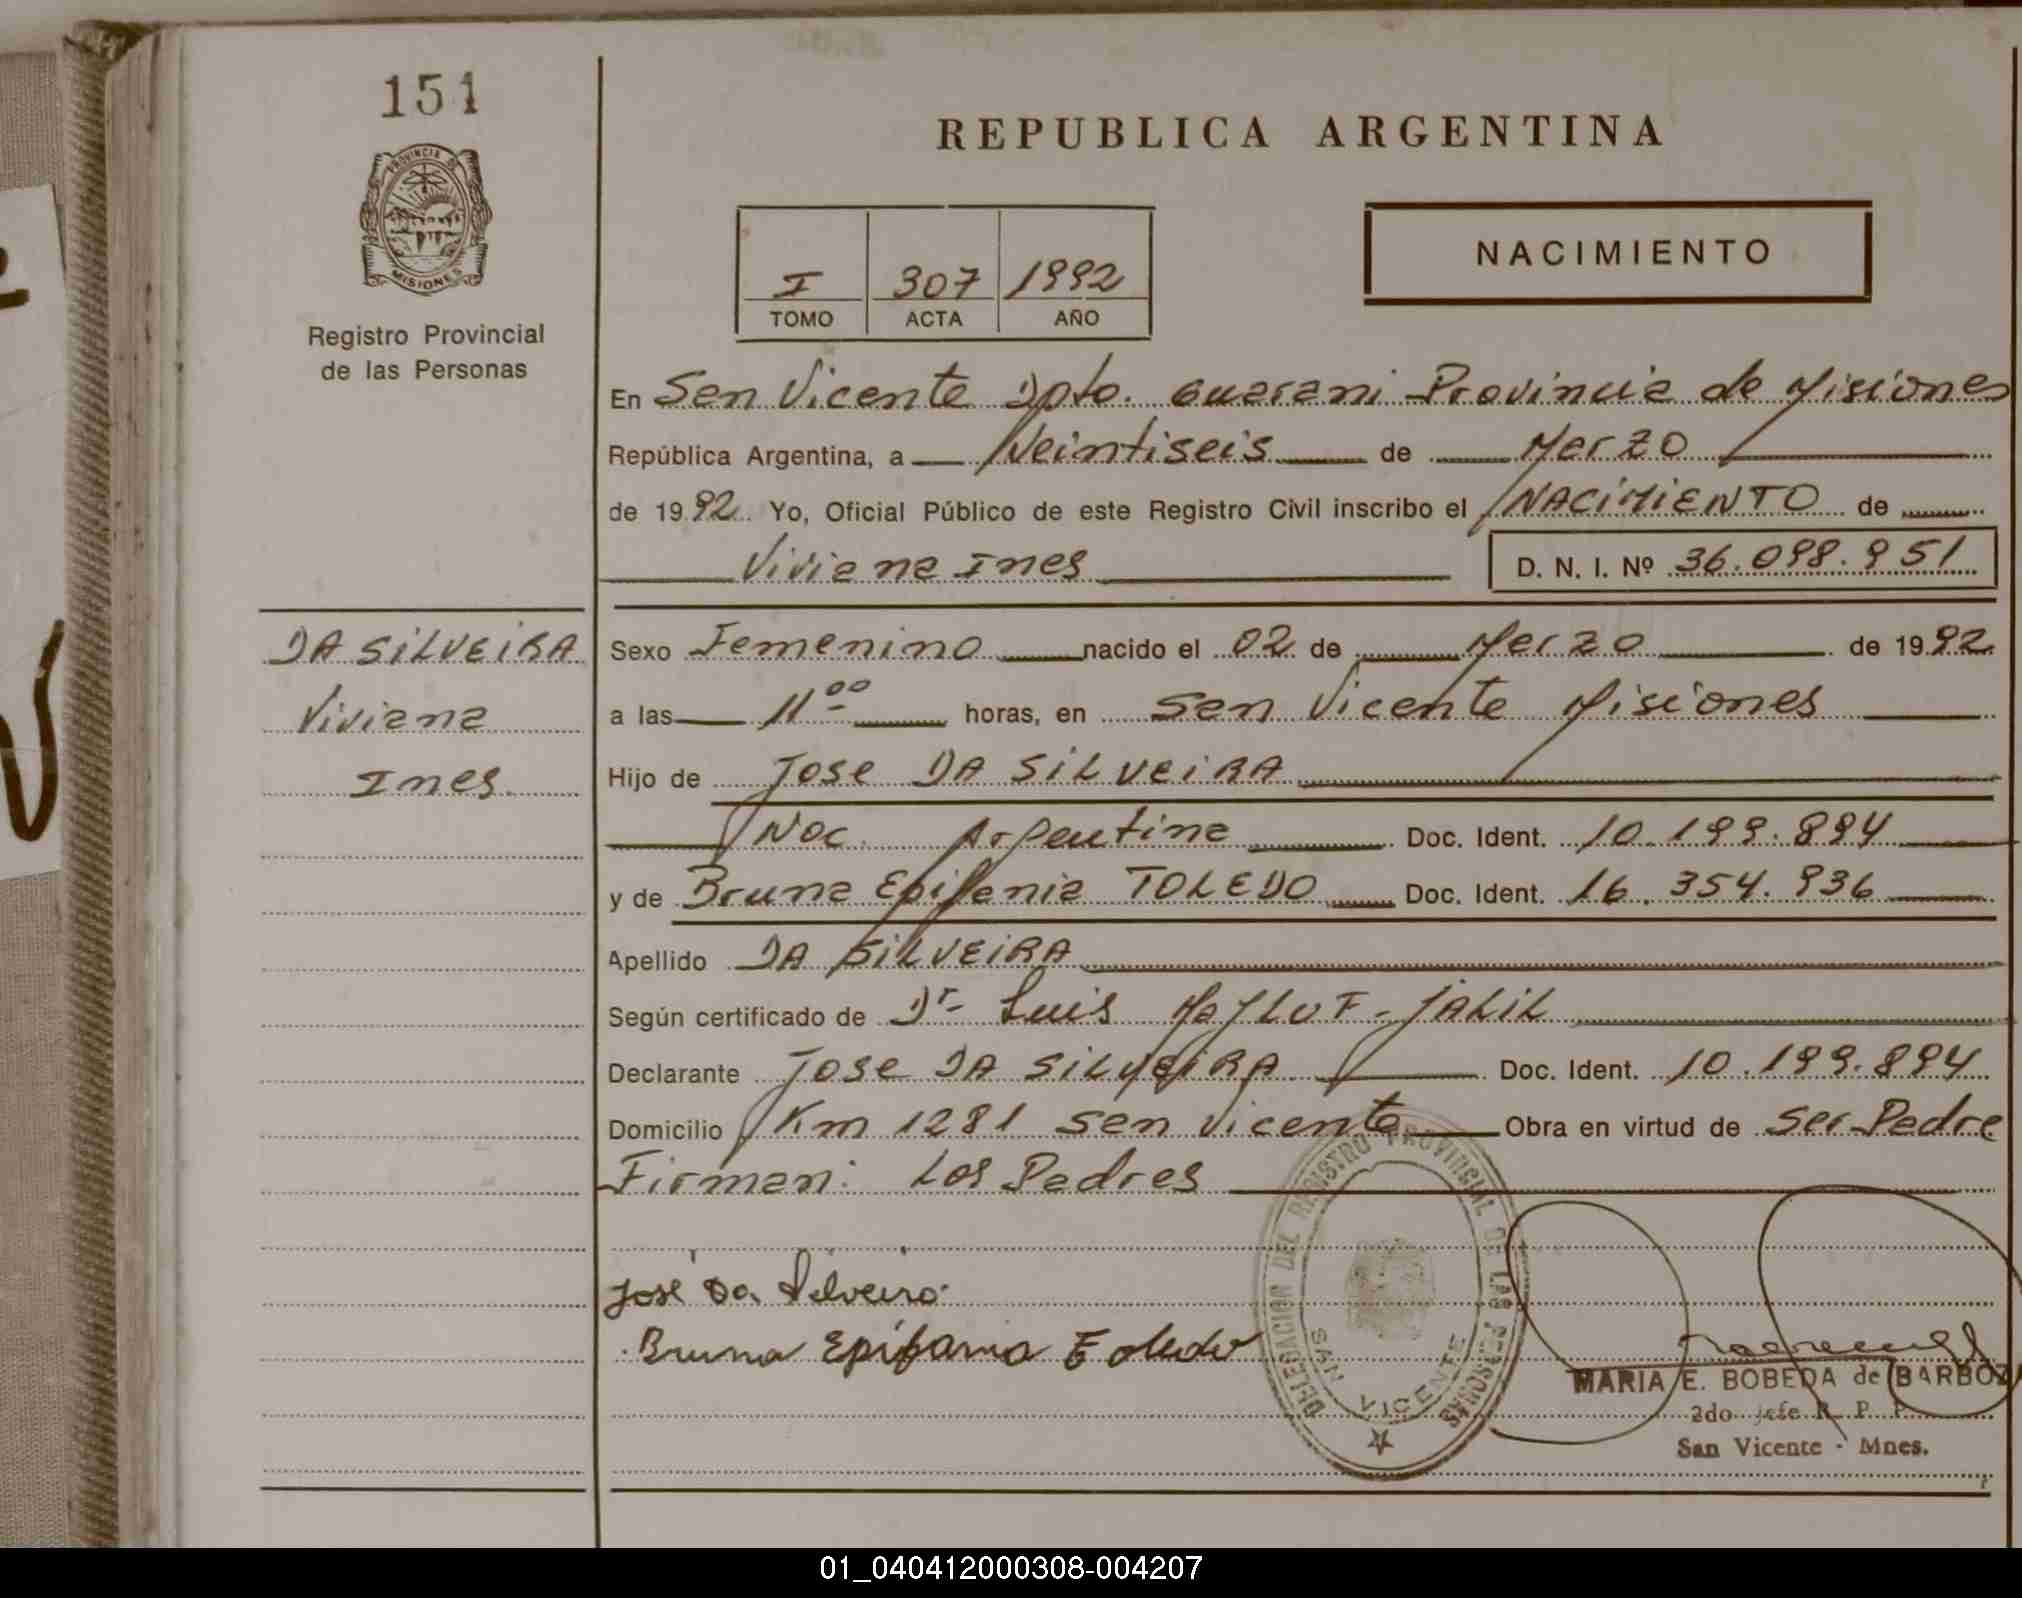 151
PROVINCIA DE
MISIONES
Registro Provincial
de las Personas
REPUBLICA ARGENTINA
I 307 1992
TOMO ACTA AÑO
NACIMIENTO
En San Vicente Dpto. Guarani Provincia de Misiones
República Argentina, a Veintiseis de Marzo
de 1992 Yo, Oficial Público de este Registro Civil inscribo el NACIMIENTO de
Viviana Ines D. N. I. Nº 36.098.951
DA SILVEIRA
Viviana
Ines
Sexo Femenino nacido el 02 de Marzo de 1992
a las 11⁰⁰ horas, en San Vicente Misiones
Hijo de Jose DA SILVEIRA
Nac. Argentina Doc. Ident. 10.199.894
y de Bruna Epifania TOLEDO Doc. Ident. 16.354.936
Apellido DA SILVEIRA
Según certificado de Dr Luis MAJLUF - JALIL
Declarante Jose DA SILVEIRA Doc. Ident. 10.199.894
Domicilio Km 1281 San Vicente Obra en virtud de Ser Padre
Firman: Los Padres
José Da Silveira
Bruna Epifania Toledo
DELEGACION DEL REGISTRO PROVINCIAL DE LAS PERSONAS
SAN VICENTE
MARIA E. BOBEDA de BARBOZA
2do Jefe R. P. P.
San Vicente - Mnes.
01_040412000308-004207